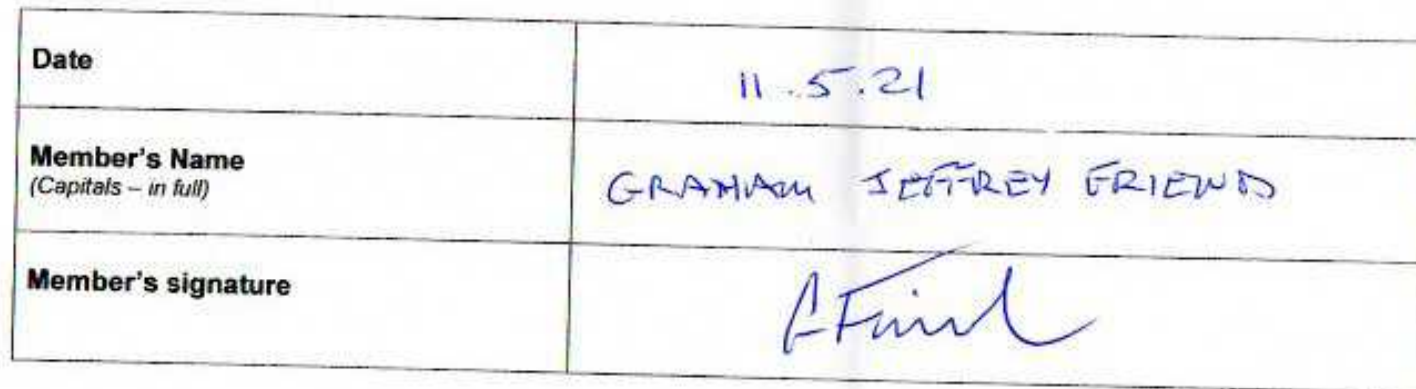 Date
11.5.21
Member's Name
(Capitals – in full)
GRAHAM JEFFREY FRIEND
Member's signature
G Friend